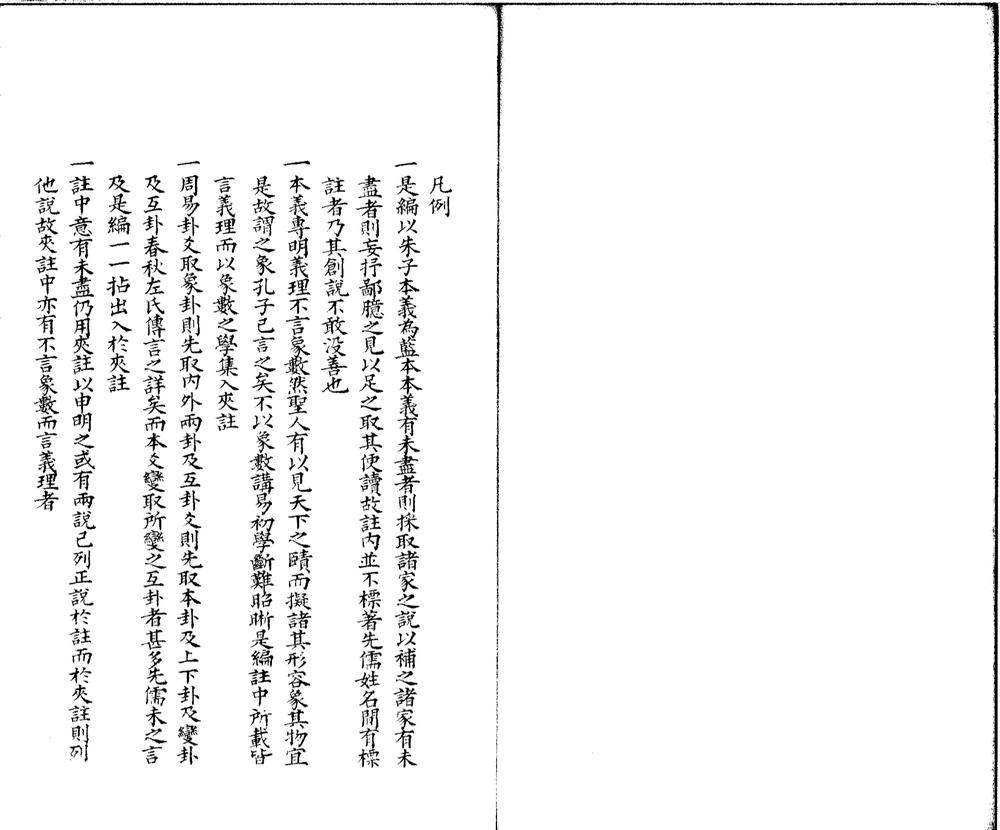 凡例
一是編以朱子本義為藍本本義有未盡者則採取諸家之說以補之諸家有未
盡者則妄抒鄙臆之見以足之取其便讀故註內並不標著先儒姓名間有標
註者乃其創說不敢没善也
一本義專明義理不言象數然聖人有以見天下之賾而擬諸其形容象其物宜
是故謂之象孔子已言之矣不以象數講易初學斷難昭晰是編註中所載皆
言義理而以象數之學集入夾註
一周易卦爻取象卦則先取内外兩卦及互卦爻則先取本卦及上下卦及變卦
及互卦春秋左氏傳言之詳矣而本爻變取所變之互卦者甚多先儒未之言
及是編一一拈出入於夾註
一註中意有未盡仍用夾註以申明之或有兩說已列正說於註而於夾註則列
他說故夾註中亦有不言象數而言義理者